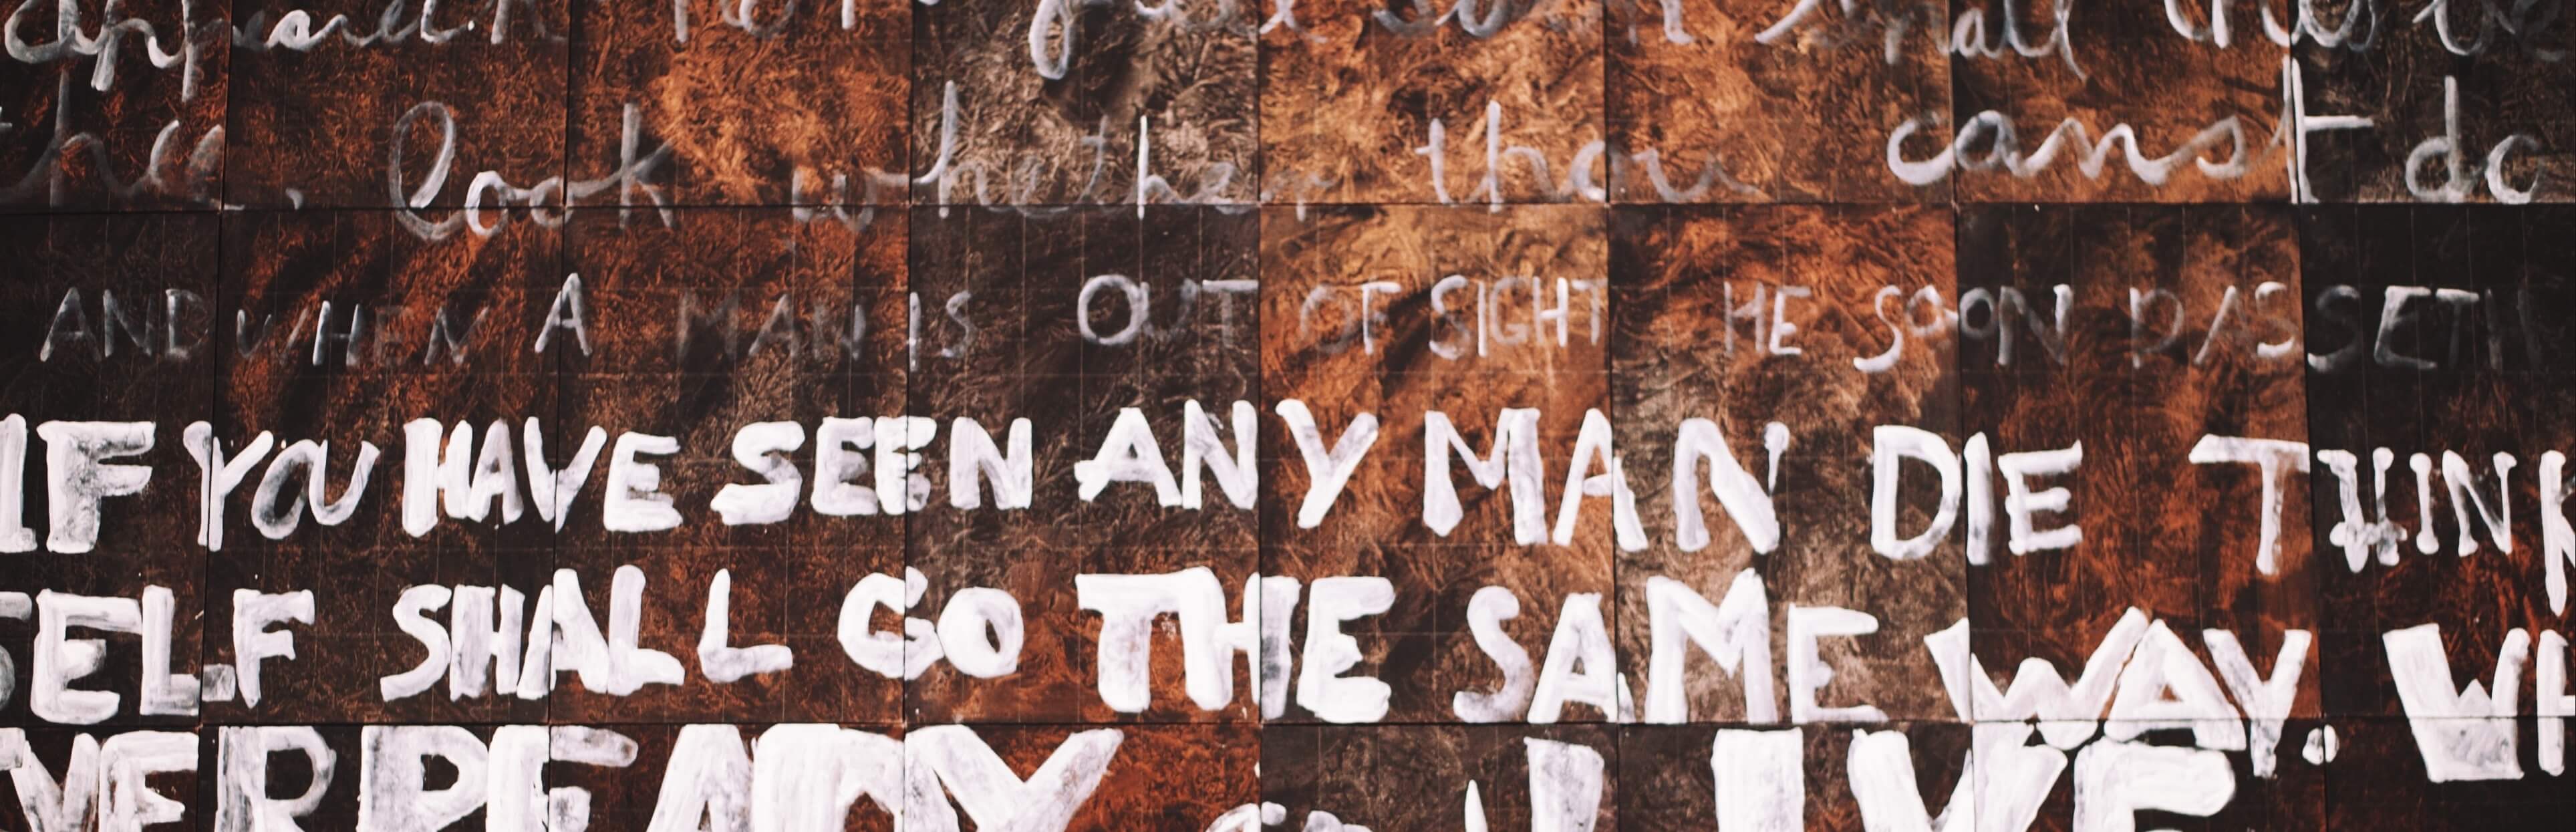 for shall
thee. look whether thou canst do
AND WHEN A MAN IS OUT OF SIGHT HE SOON PASSETH
IF YOU HAVE SEEN ANY MAN DIE THINK
SELF SHALL GO THE SAME WAY. WH
VER READY LIVE